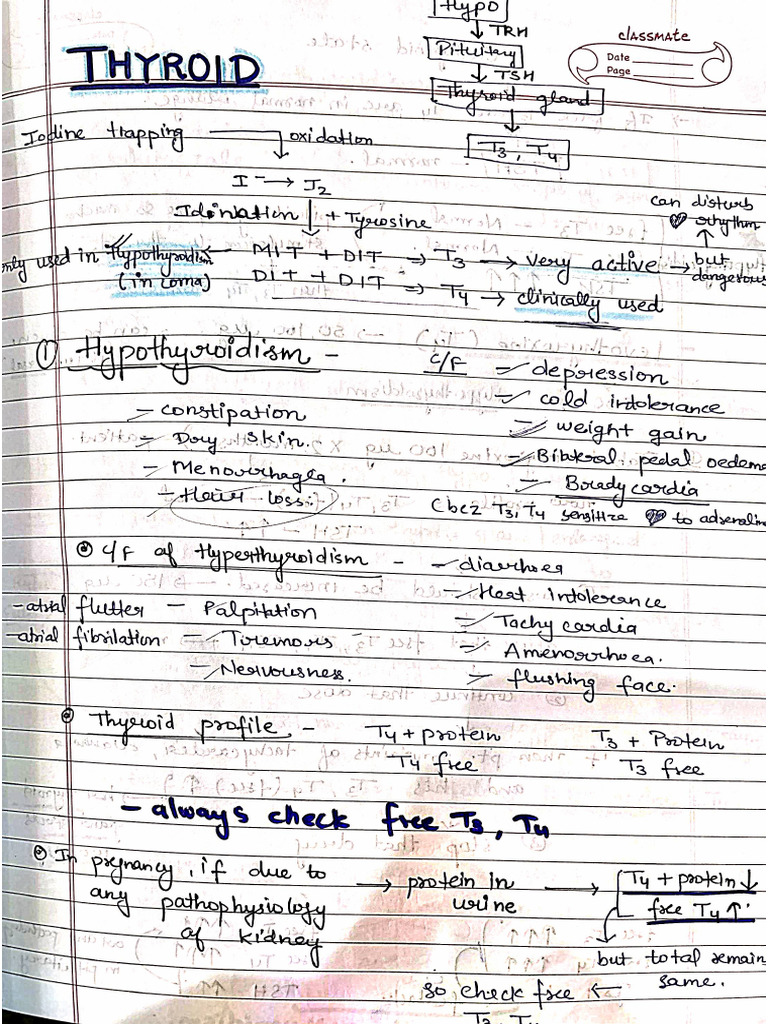 Hypo
TRH
Pituitary
TSH
Thyroid gland
T3, T4
classmate
Date
Page
THYROID
Iodine trapping → oxidation
I⁻ → I2
Idoination + Tyrosine
can disturb
rhythm
but
dangerous
only used in Hypothyroidism
(in coma)
MIT + DIT ⇒ T3 → very active
DIT + DIT ⇒ T4 → clinically used
① Hypothyroidism -
C/F - depression
- cold intolerance
- weight gain
- Bilateral pedal oedema
- Bradycardia
Cbcz T3, T4 sensitize to adrenaline
- constipation
- Dry skin.
- Menorrhagea.
- Hair loss.
C/F of Hyperthyroidism - - diarrhoea
- Heat intolerance
- Tachycardia
- Amenorrhoea.
- flushing face.
- atrial flutter - Palpitation
- atrial fibrilation - Tremors
- Nervousness.
Thyroid profile - T4 + protein T3 + Protein
T4 free T3 free
- always check free T3, T4
In pregnancy, if due to
any pathophysiology
of kidney
→ protein in
urine
→ T4 + protein ↓
free T4 ↑
but total remain
same.
so check free ←
T3, T4